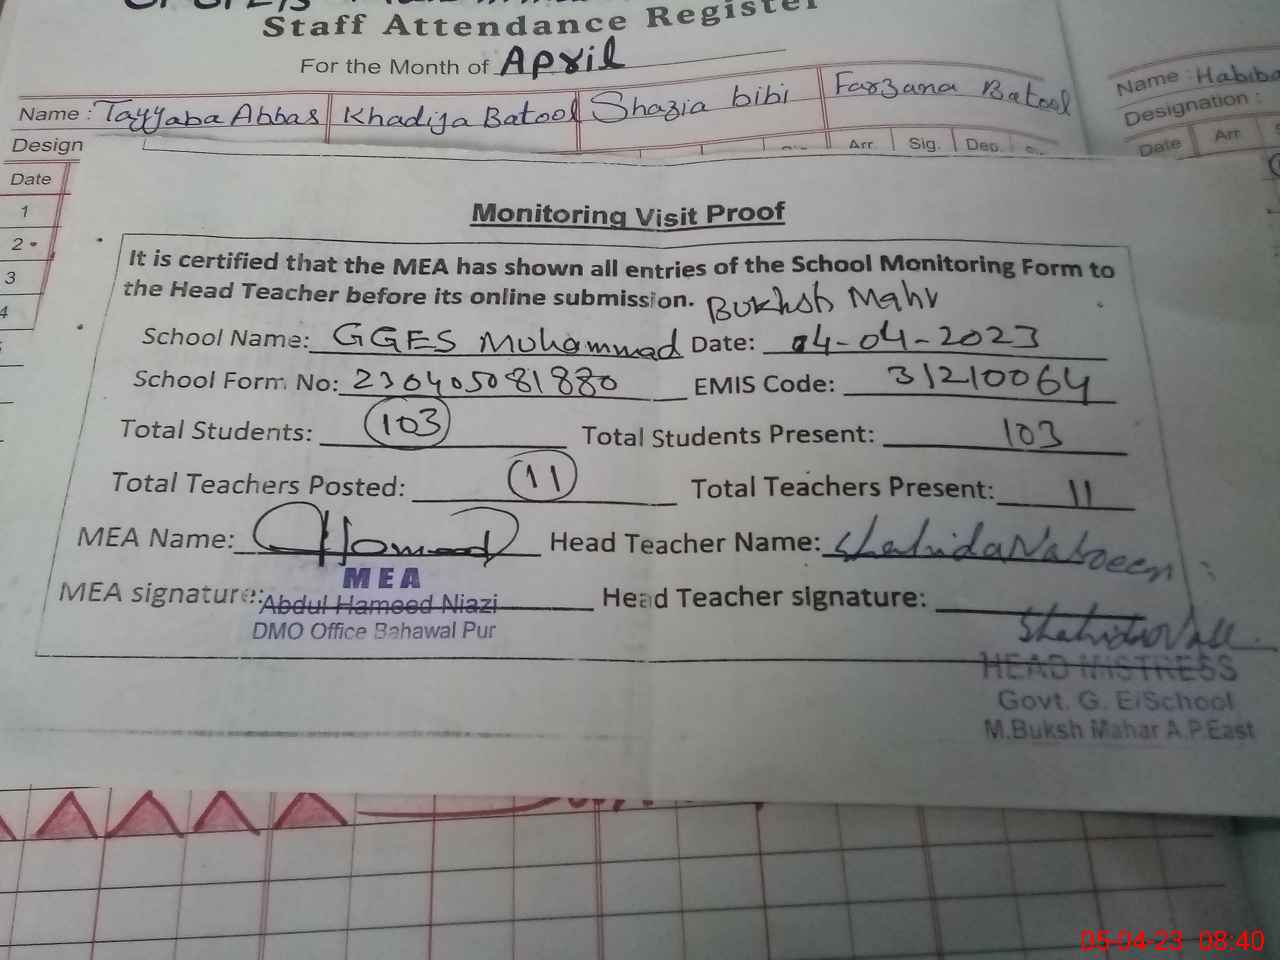 Staff Attendance Register
For the Month of April
Name : Tayyaba Abbas Khadija Batool Shazia bibi Farzana Batool
Name : Habiba
Designation :
Design
Arr. Sig. Dep.
Date Arr.
Date
1
2
3
4
Monitoring Visit Proof
It is certified that the MEA has shown all entries of the School Monitoring Form to
the Head Teacher before its online submission. Bukhsh Mahr
School Name: GGES Muhammad Date: 04-04-2023
School Form No: 230405081880 EMIS Code: 31210064
Total Students: 103 Total Students Present: 103
Total Teachers Posted: 11 Total Teachers Present: 11
MEA Name: Hameed Head Teacher Name: Shahida Nasreen
MEA
MEA signature: Abdul Hameed Niazi Head Teacher signature:
DMO Office Bahawal Pur
HEAD MISTRESS
Govt. G. E/School
M.Buksh Mahar A.P.East
05-04-23 08:40